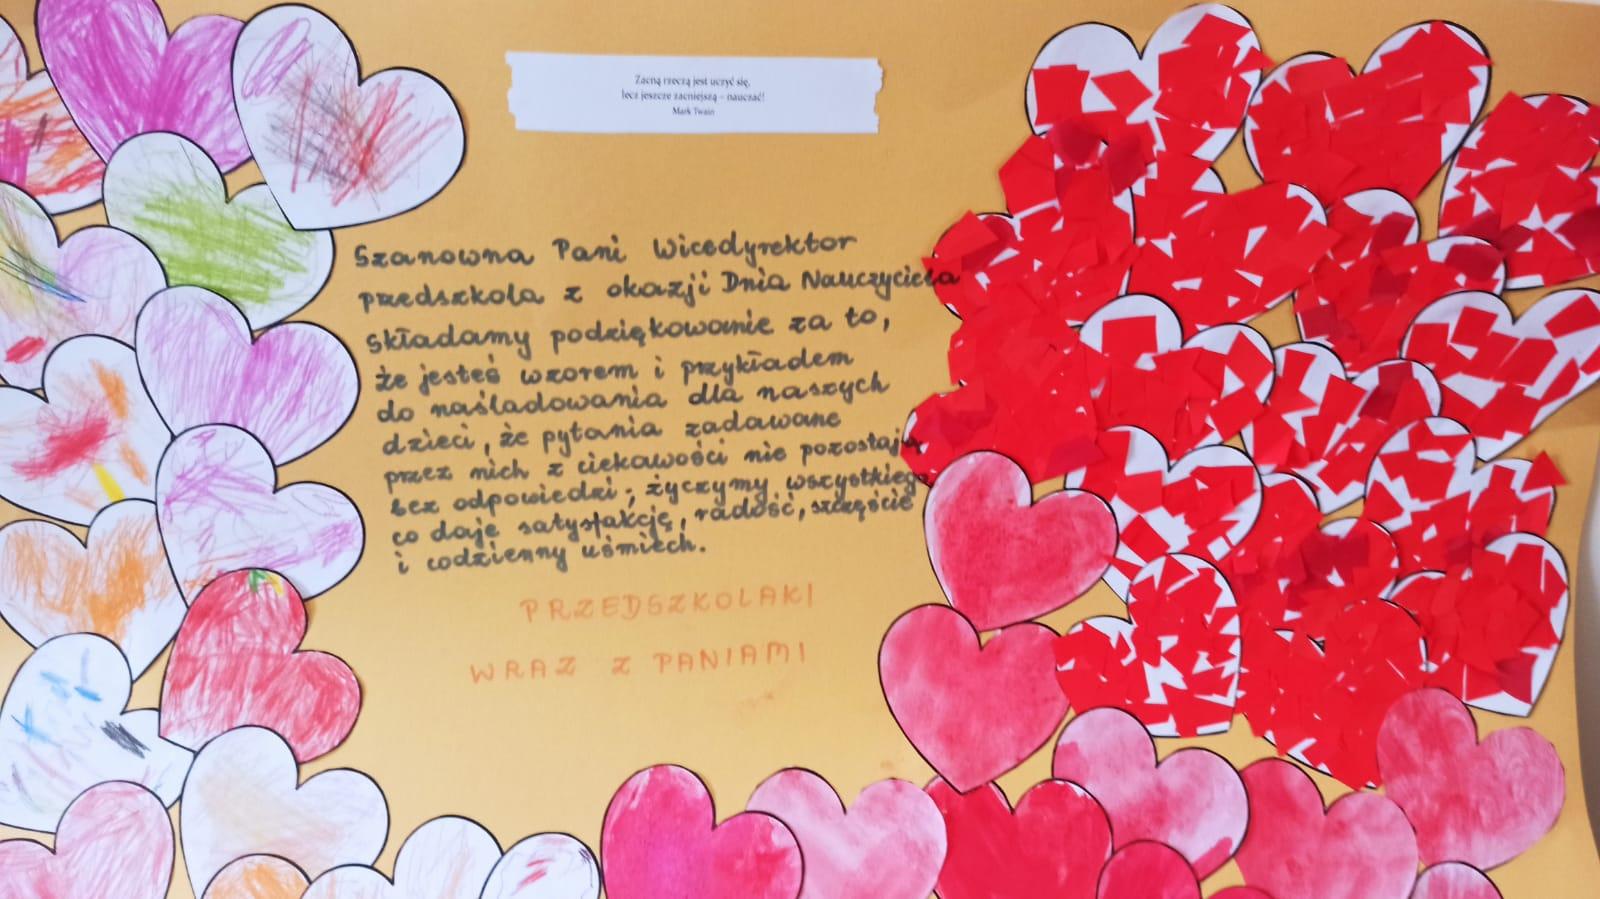 Zacną rzeczą jest uczyć się,
lecz jeszcze zacniejszą – nauczać!
Mark Twain
Szanowna Pani Wicedyrektor
przedszkola z okazji Dnia Nauczyciela
składamy podziękowanie za to,
że jesteś wzorem i przykładem
do naśladowania dla naszych
dzieci, że pytania zadawane
przez nich z ciekawości nie pozostają
bez odpowiedzi; życzymy wszystkiego
co daje satysfakcję, radość, szczęście
i codzienny uśmiech.
PRZEDSZKOLAKI
WRAZ Z PANIAMI